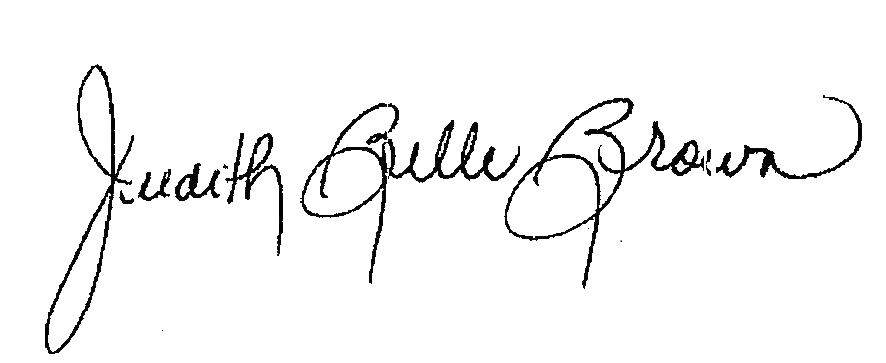 Judith Belle Brown